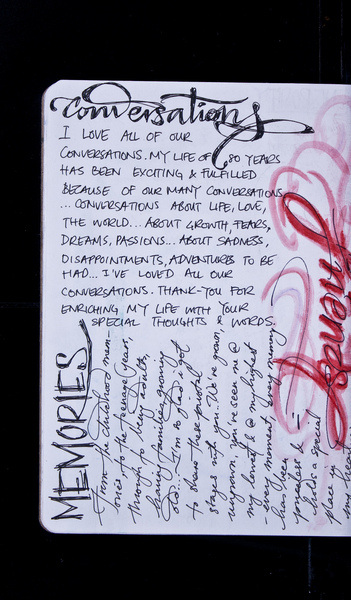 Conversations
I LOVE ALL OF OUR
CONVERSATIONS. MY LIFE OF 80 YEARS
HAS BEEN EXCITING & FULFILLED
BECAUSE OF OUR MANY CONVERSATIONS
... CONVERSATIONS ABOUT LIFE, LOVE,
THE WORLD... ABOUT GROWTH, FEARS,
DREAMS, PASSIONS... ABOUT SADNESS,
DISAPPOINTMENTS, ADVENTURES TO BE
HAD... I'VE LOVED ALL OUR
CONVERSATIONS. THANK-YOU FOR
ENRICHING MY LIFE WITH YOUR
SPECIAL THOUGHTS & WORDS.
MEMORIES
from the childhood mem-
ories to the teenage years,
through to being adults,
having families, growing
old... I'm so glad I got
to share these pivotal
stages with you... We've grown &
ungrown. You've seen me @
my lowest & @ my highest
- every moment, every memory
has been
priceless &
holds a special
place in
my heart